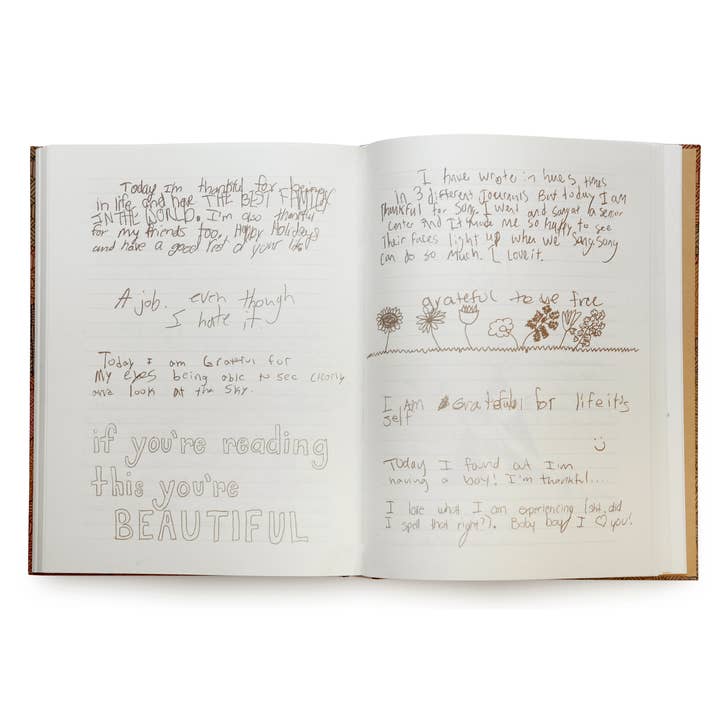 Today I'm thankful for being
in life and have THE BEST FAMILY
IN THE WORLD. I'm also thankful
for my friends too, Happy Holidays
and have a good rest of your life!
A job. even though
I hate it
Today I am Grateful for
My eyes being able to see clearly
and look at the Sky.
if you're reading
this you're
BEAUTIFUL
I have wrote in here 5 times
in 3 different Journals But today I am
thankful for Song. I went and sang at a senior
center And It made me so happy to see
Their faces light up when we Sang. Song
can do so Much. I Love it.
grateful to be free
I Am Grateful for life it's
self
:)
Today I found out I'm
having a boy! I'm thankful....
I love what I am experiencing (shit, did
I spell that right?). Baby boy I ♡ you!